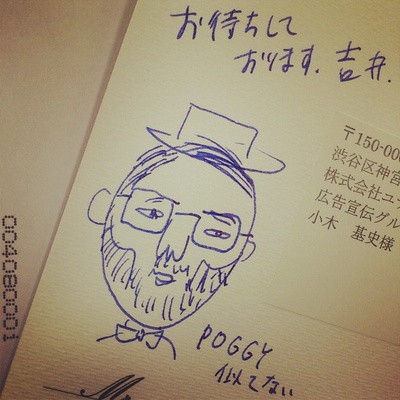 お待ちして
おります。吉井.
〒150-00
渋谷区神宮
株式会社ユナ
広告宣伝グル
小木 基史様
POGGY
似てない
004080001